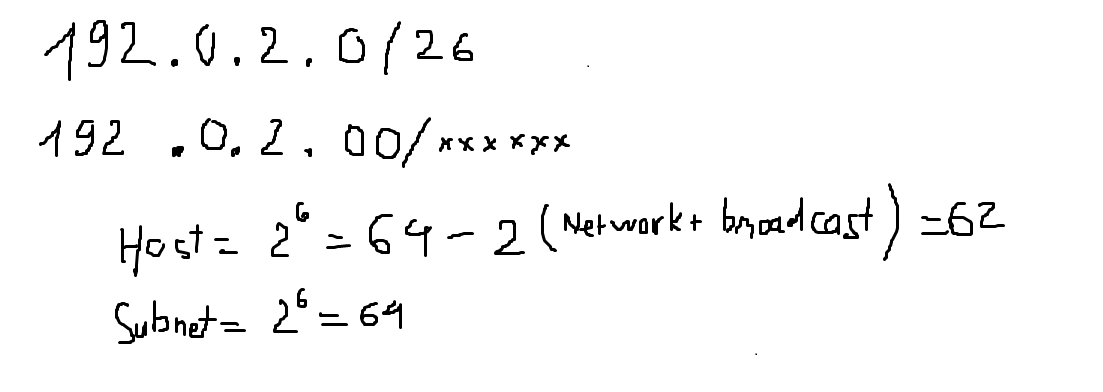 192.0.2.0/26
192.0.2.00/xxxxxx
Host = 2^6 = 64 - 2 (Network + broadcast) = 62
Subnet = 2^6 = 64